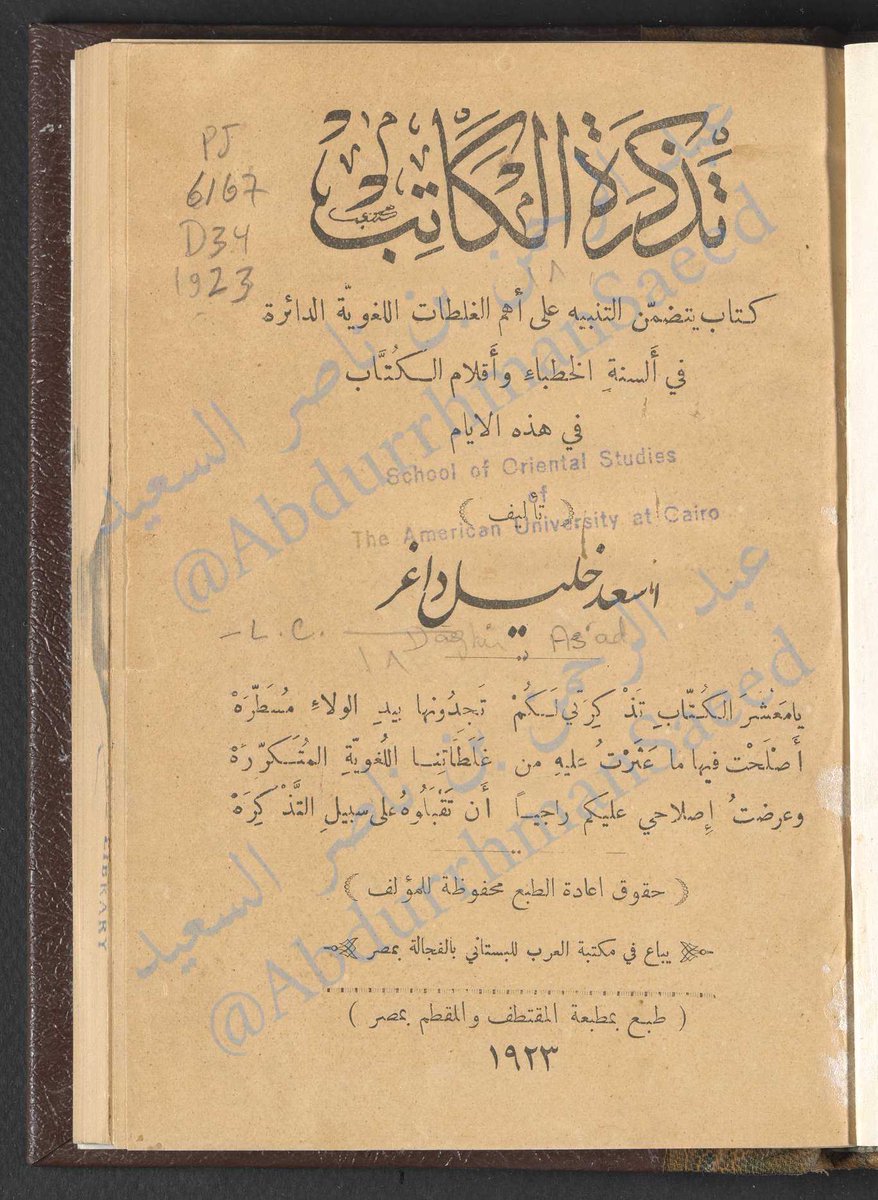 تَذْكِرَةُ الكَاتِب
PJ
6167
D34
1923
كتاب يتضمّن التنبيه على أهم الغلطات اللغويَّة الدائرة
في أَلسنةِ الخطباءِ وأَقلام الكُتَّاب
في هذه الايام
School of Oriental Studies
of
The American University at Cairo
( تأليف )
اسعد خليل داغر
-L. C. Daghir As'ad
١٨
يامَعْشرَ الكُتَّابِ تَذْكِرَتي لَكُمْ تَجِدُونها بيدِ الولاءِ مُسَطَّرَهْ
أَصْلَحْت فيها ما عَثَرْتُ عليهِ من غَلَطَاتِنا اللُغويَّةِ المُتَكرّرَهْ
وعرضتُ إِصلاحي عليكم راجياً أَن تَقْبَلُوهُ على سبيلِ التَّذْكِرَهْ
( حقوق اعادة الطبع محفوظة للمؤلف )
يباع في مكتبة العرب للبستاني بالفجالة بمصر
( طبع بمطبعة المقتطف والمقطم بمصر )
١٩٢٣
LIBRARY
عبد الرحمن بن ناصر السعيد
@AbdurrhmanSaeed
عبد الرحمن بن ناصر السعيد
@AbdurrhmanSaeed